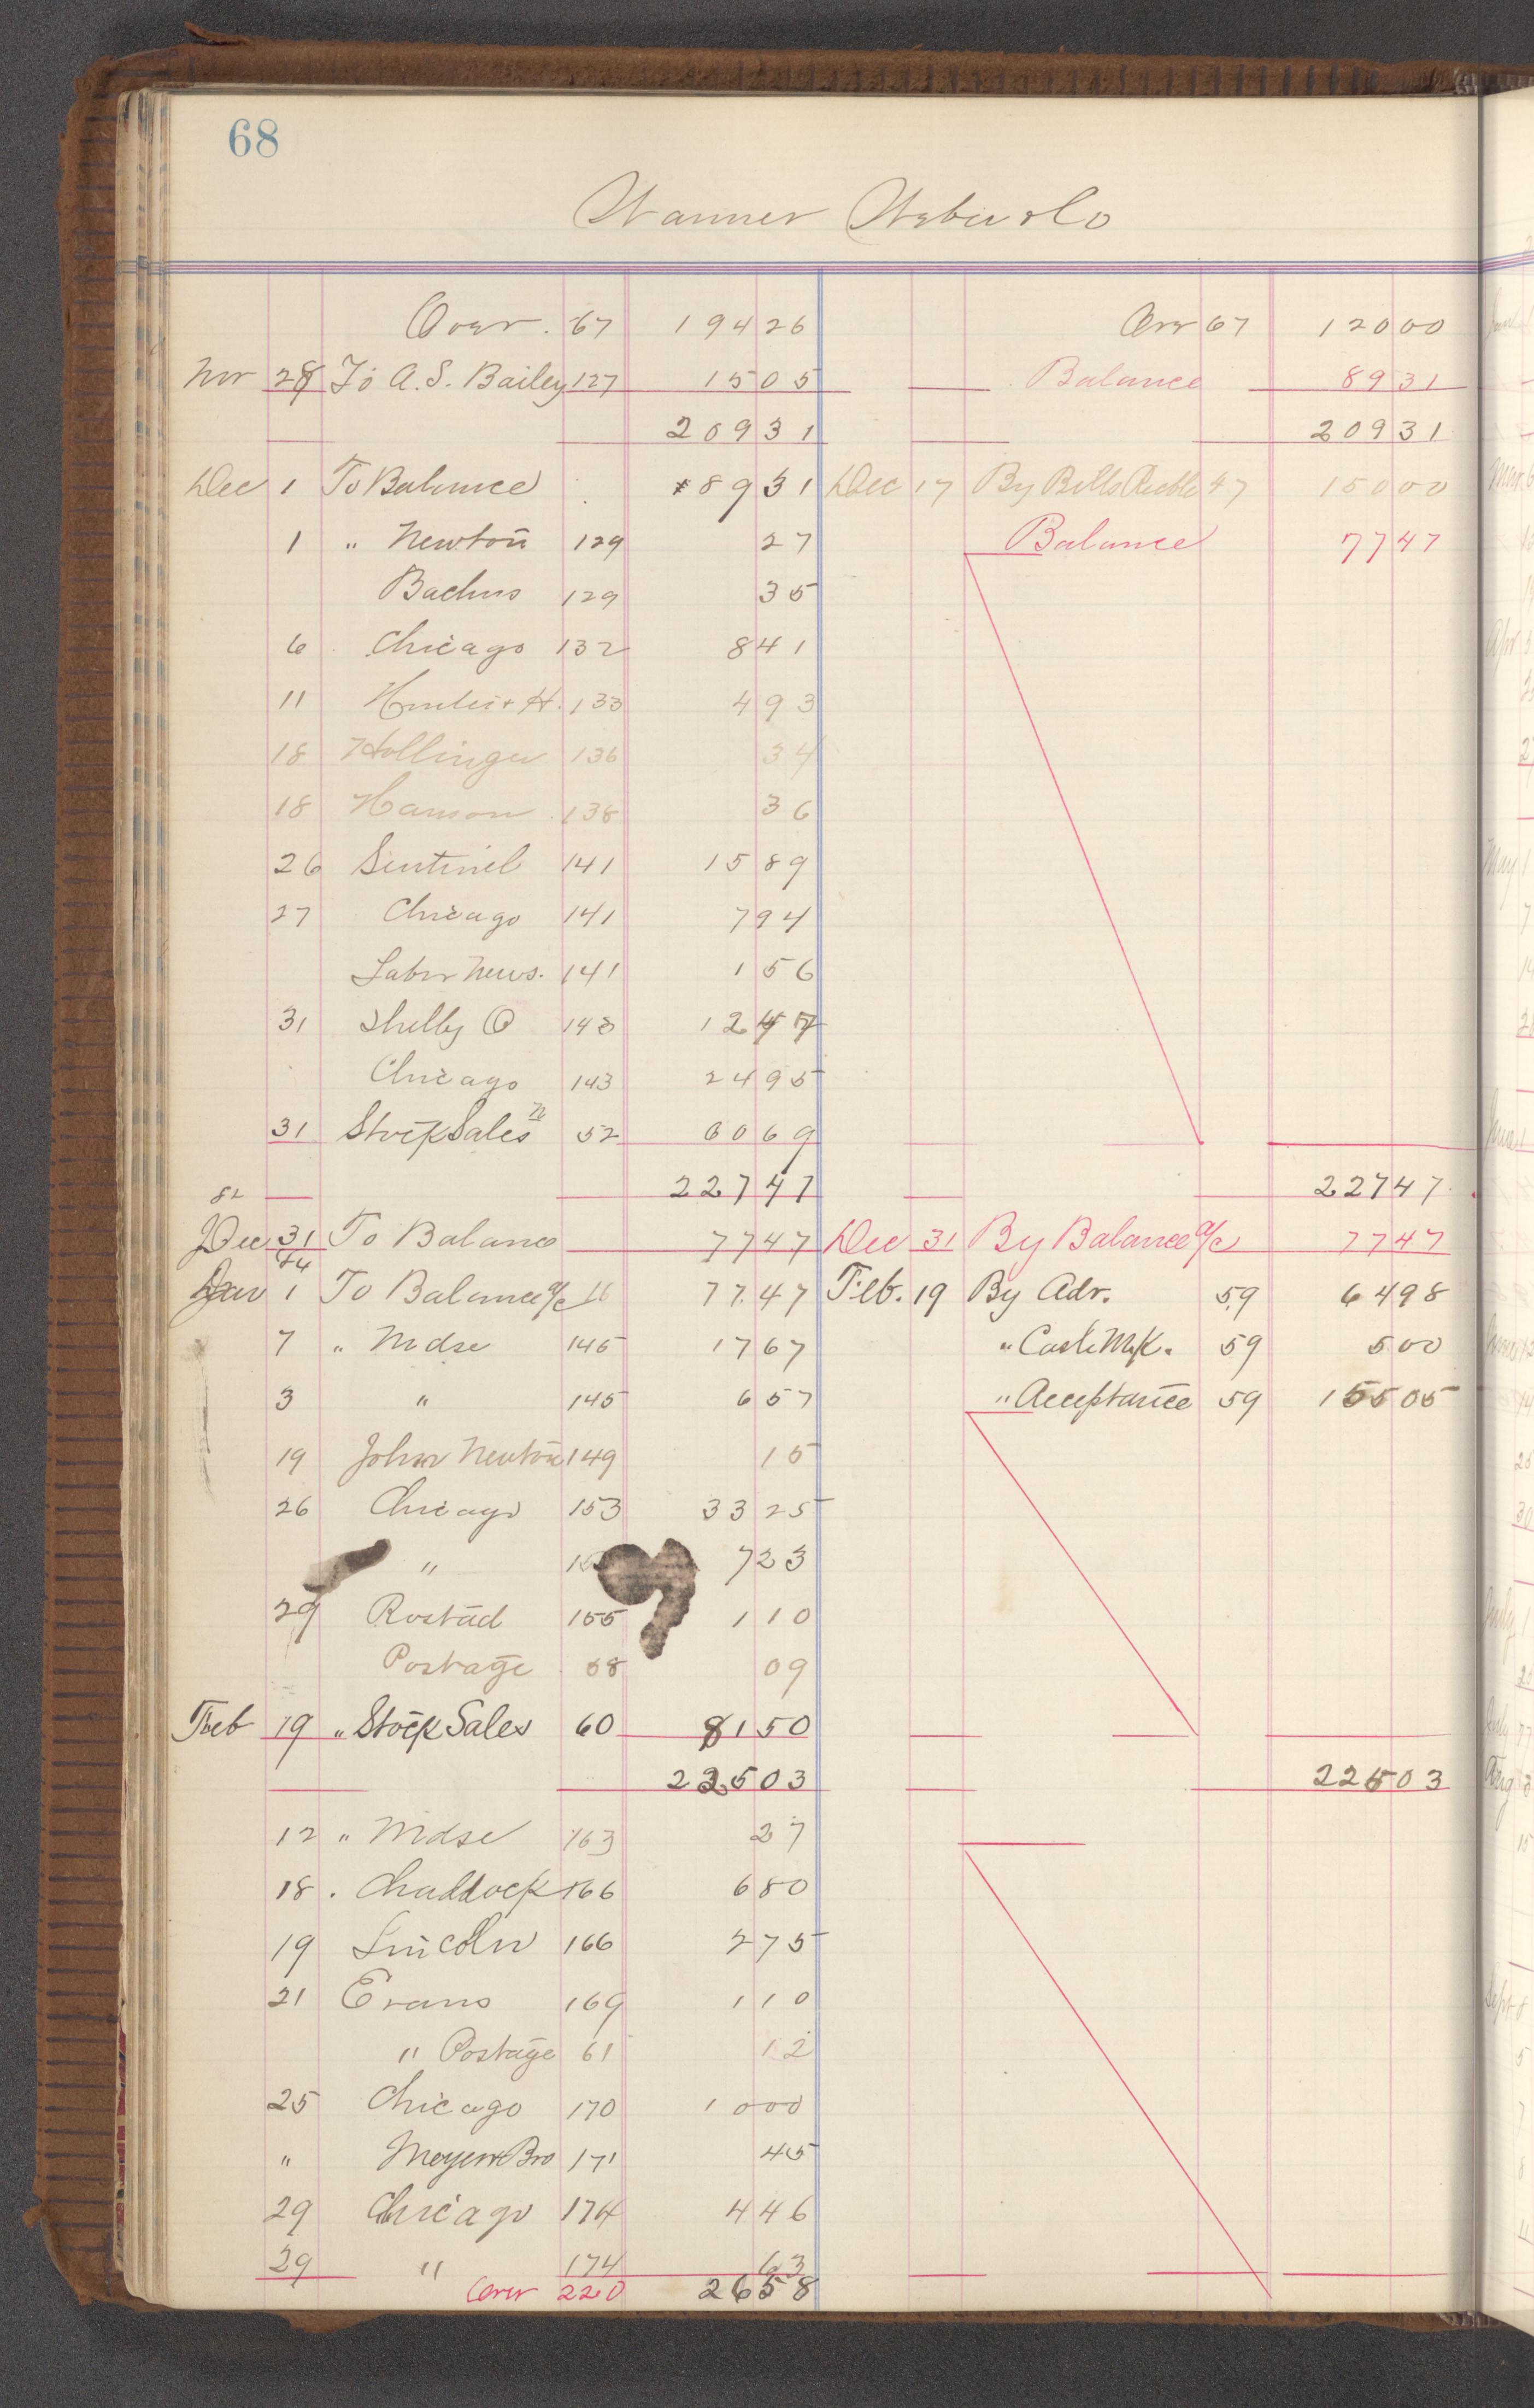 68
Wanner Weber & Co
Over. 67 194 26 Over 67 120 00
Nov 28 To A. S. Bailey 127 15 05 Balance 89 31
209 31 209 31
Dec 1 To Balance 89 31 Dec 17 By Bills Recble 47 150 00
1 " Newton 129 27 Balance 77 47
Bachus 129 35
6 Chicago 132 8 41
11 Hunter & H. 133 4 93
18 Hollinger 136 34
18 Hanson 138 36
26 Sentinel 141 15 89
27 Chicago 141 7 94
Labor News. 141 1 56
31 Shelby O 143 12 47
Chicago 143 24 95
31 Stock Sales 52 60 69
227 47 227 47
82
Dec 31 To Balance 77 47 Dec 31 By Balance a/c 77 47
84
Jan 1 To Balance a/c 16 77.47 Feb. 19 By Adv. 59 64 98
7 " Mdse 145 17 67 " Cash MK. 59 5 00
3 " 145 6 57 " Acceptance 59 155 05
19 John Newton 149 15
26 Chicago 153 33 25
" 15 7 23
29 Rostad 155 1 10
Postage 58 09
Feb 19 " Stock Sales 60 81 50
225 03 225 03
12 " Mdse 163 27
18 . Chaddock 166 6 80
19 Lincoln 166 2 75
21 Evans 169 1 10
" Postage 61 12
25 Chicago 170 10 00
" Meyer Bro 171 45
29 Chicago 174 4 46
29 " 174 63
Over 220 26 58